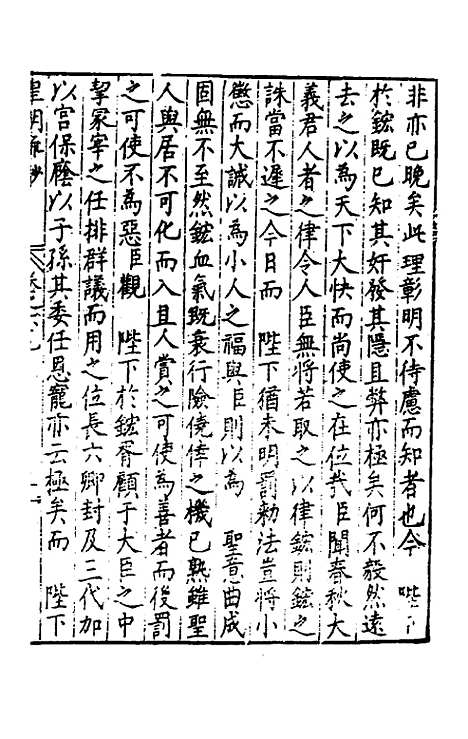 非亦已晚矣此理彰明不待慮而知者也今　陛下
於鋐既已知其奸發其隱且弊亦極矣何不毅然遠
去之以為天下大快而尚使之在位哉臣聞春秋大
義君人者之律令人臣無將若取之以律鋐則鋐之
誅當不遲之今日而　陛下猶未明罰勅法豈將小
懲而大誡以為小人之福與臣則以為　聖意曲成
固無不至然鋐血氣既衰行險僥倖之機已熟雖聖
人與居不可化而入且人賞之可使為善者而後罰
之可使不為惡臣觀　陛下於鋐眷顧于大臣之中
挈冢宰之任排群議而用之位長六卿封及三代加
以宮保廕以子孫其委任恩寵亦云極矣而　陛下
皇明疏鈔